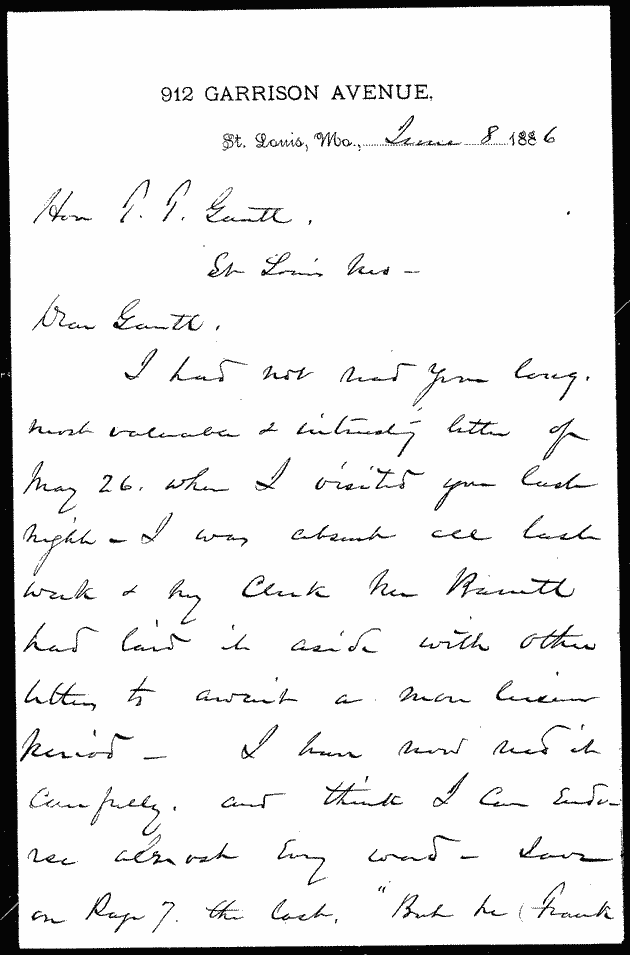 912 GARRISON AVENUE,
St. Louis, Mo., June 8 1886
Hon T. T. Gantt.
St Louis Mo -
Dear Gantt.
I had not read your long.
most valuable & interesting letter of
May 26. when I visited you last
night - I was absent all last
week & my Clerk Mr Barrett
had laid it aside with other
letters to await a more leisure
period - I have now read it
carefully. and think I can endo-
rse almost every word - save
on Page 7. the last, "But he (Frank